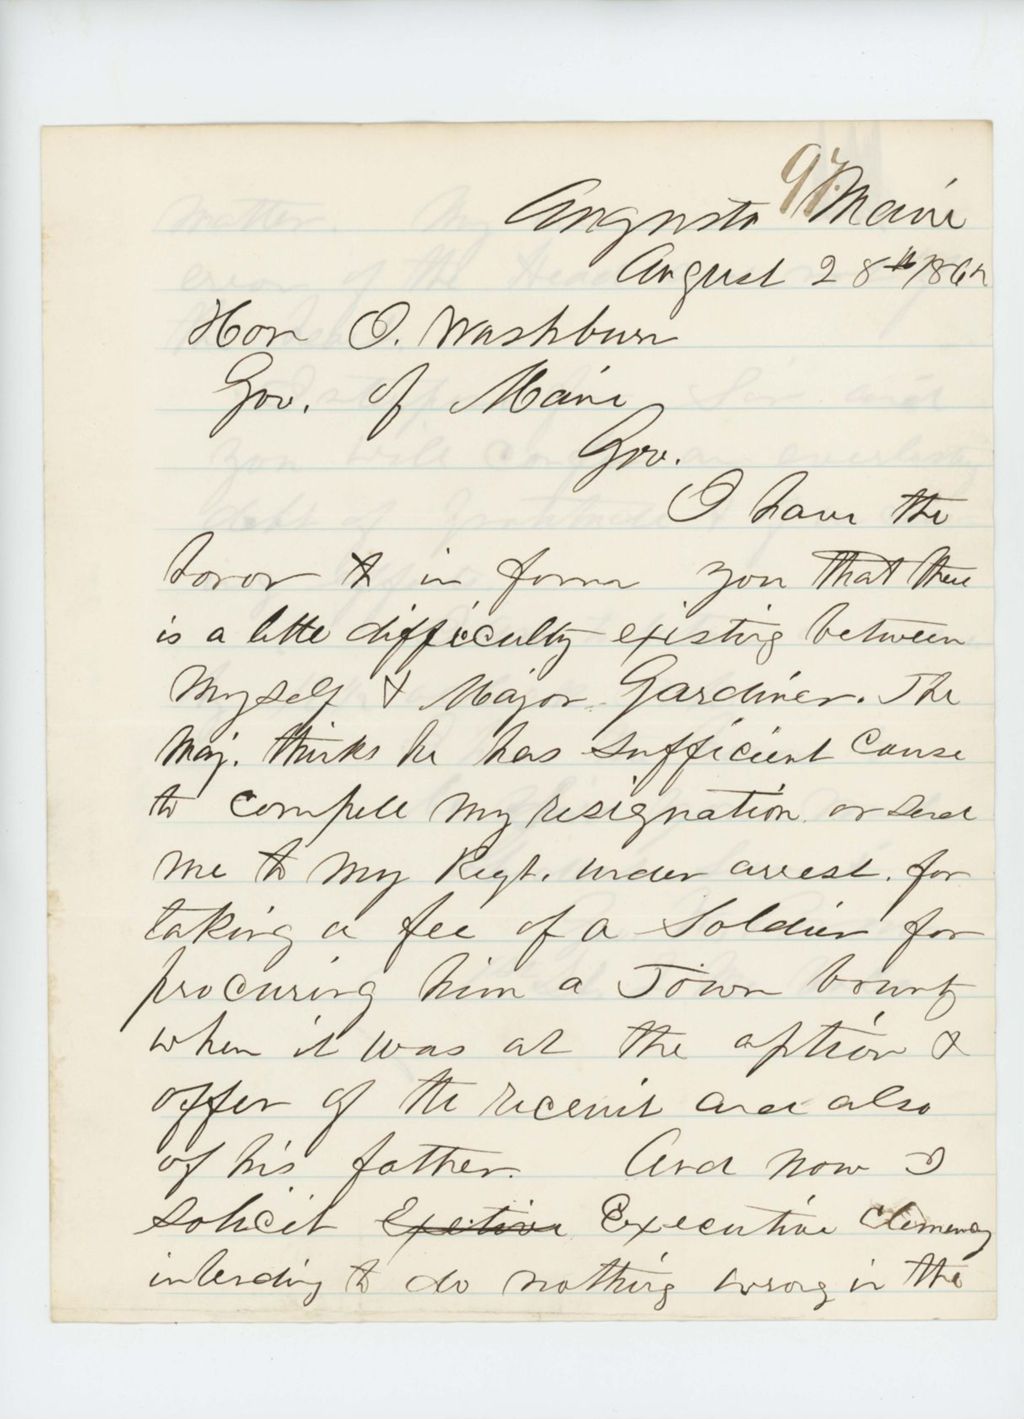 97.
Augusta Maine
August 28th 1862
Hon I. Washburn
Gov. of Maine
Gov.
I have the
honor to in form you that there
is a little difficulty existing between
myself & Major Gardiner. The
Maj. thinks he has sufficient cause
to compell my resignation or send
me to my Regt. under arrest. for
taking a fee of a Soldier for
procuring him a Town bounty
when it was at the option &
offer of the recruit and also
of his father. And now I
solicit Exetive Executive Clemency
intending to do nothing wrong in the